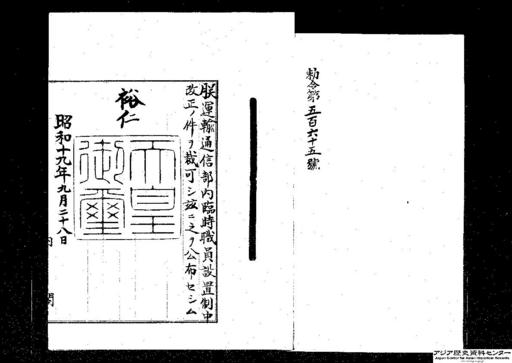 勅令第五百六十五號
朕運輸通信部内臨時職員設置制中
改正ノ件ヲ裁可シ玆ニ之ヲ公布セシム
裕仁
天皇
御璽
昭和十九年九月二十八日
内閣
アジア歴史資料センター
Japan Center for Asian Historical Records